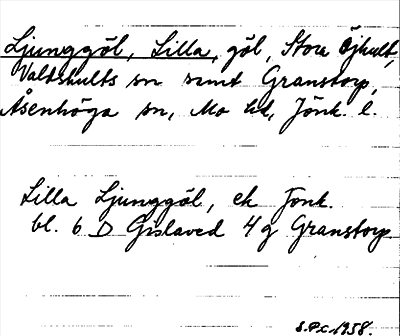 Ljunggöl, Lilla, göl, Stora Öjhult,
Valdshults sn samt Granstorp,
Åsenhöga sn, Mo hd, Jönk. l.
Lilla Ljunggöl, ek Jönk.
bl. 6 D Gislaved 4 g Granstorp
S.P.c. 1958.